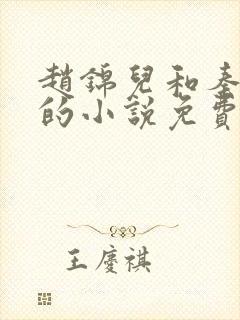 趙錦兒和秦
的小說免費
王慶祺